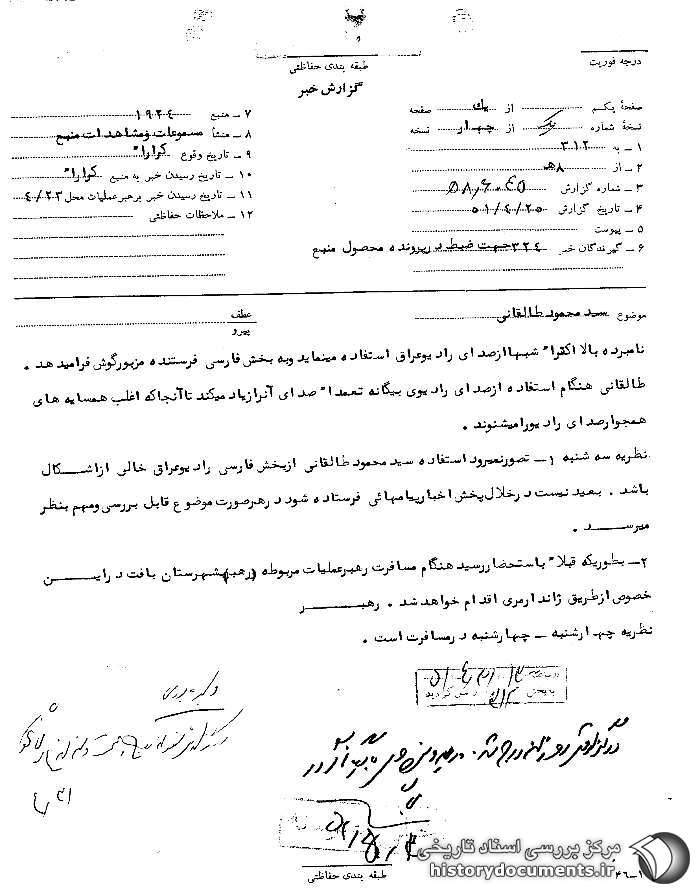 درجه فوریت
طبقه بندی حفاظتی
گزارش خبر
صفحهٔ یکم از یک صفحه
نسخهٔ شماره یک از چهار نسخه
۱ – به ۳۱۲
۲ – از ۸ هـ
۳ – شماره گزارش
۴ – تاریخ گزارش ۵۱/۴/۲۵
۵ – پیوست
۶ – گیرندگان خبر ۳۲۴ جهت ضبط در پرونده محصول منبع
۷ – منبع ۱۹۲۴
۸ – منشأ مسموعات و مشاهدات منبع
۹ – تاریخ وقوع کرارا"
۱۰ – تاریخ رسیدن خبر به منبع کرارا"
۱۱ – تاریخ رسیدن خبر برهبر عملیات محل ۴/۲۳
۱۲ – ملاحظات حفاظتی
موضوع سید محمود طالقانی
عطف
پیرو
نامبرده بالا اکثرا" شبها از صدای رادیو عراق استفاده مینماید و به بخش فارسی فرستنده مزبور گوش فرا میدهد .
طالقانی هنگام استفاده از صدای رادیوی بیگانه تعمدا" صدای آنرا زیاد میکند تا آنجا که اغلب همسایه های
همجوار صدای رادیو را میشنوند .
نظریه سه شنبه ۱ – تصور نمیرود استفاده سید محمود طالقانی از بخش فارسی رادیو عراق خالی از اشکال
باشد . بعید نیست در خلال پخش اخبار پیامهائی فرستاده شود در هر صورت موضوع قابل بررسی و مهم بنظر
میرسد .
۲ – بطوریکه قبلا" باستحضار رسید هنگام مسافرت رهبر عملیات مربوطه (رهبر) بشهرستان بافت در این
خصوص از طریق ژاندارمری اقدام خواهد شد . رهبر
نظریه چهارشنبه – چهارشنبه در مسافرت است .
طبقه بندی حفاظتی
مرکز بررسی اسناد تاریخی
historydocuments.ir